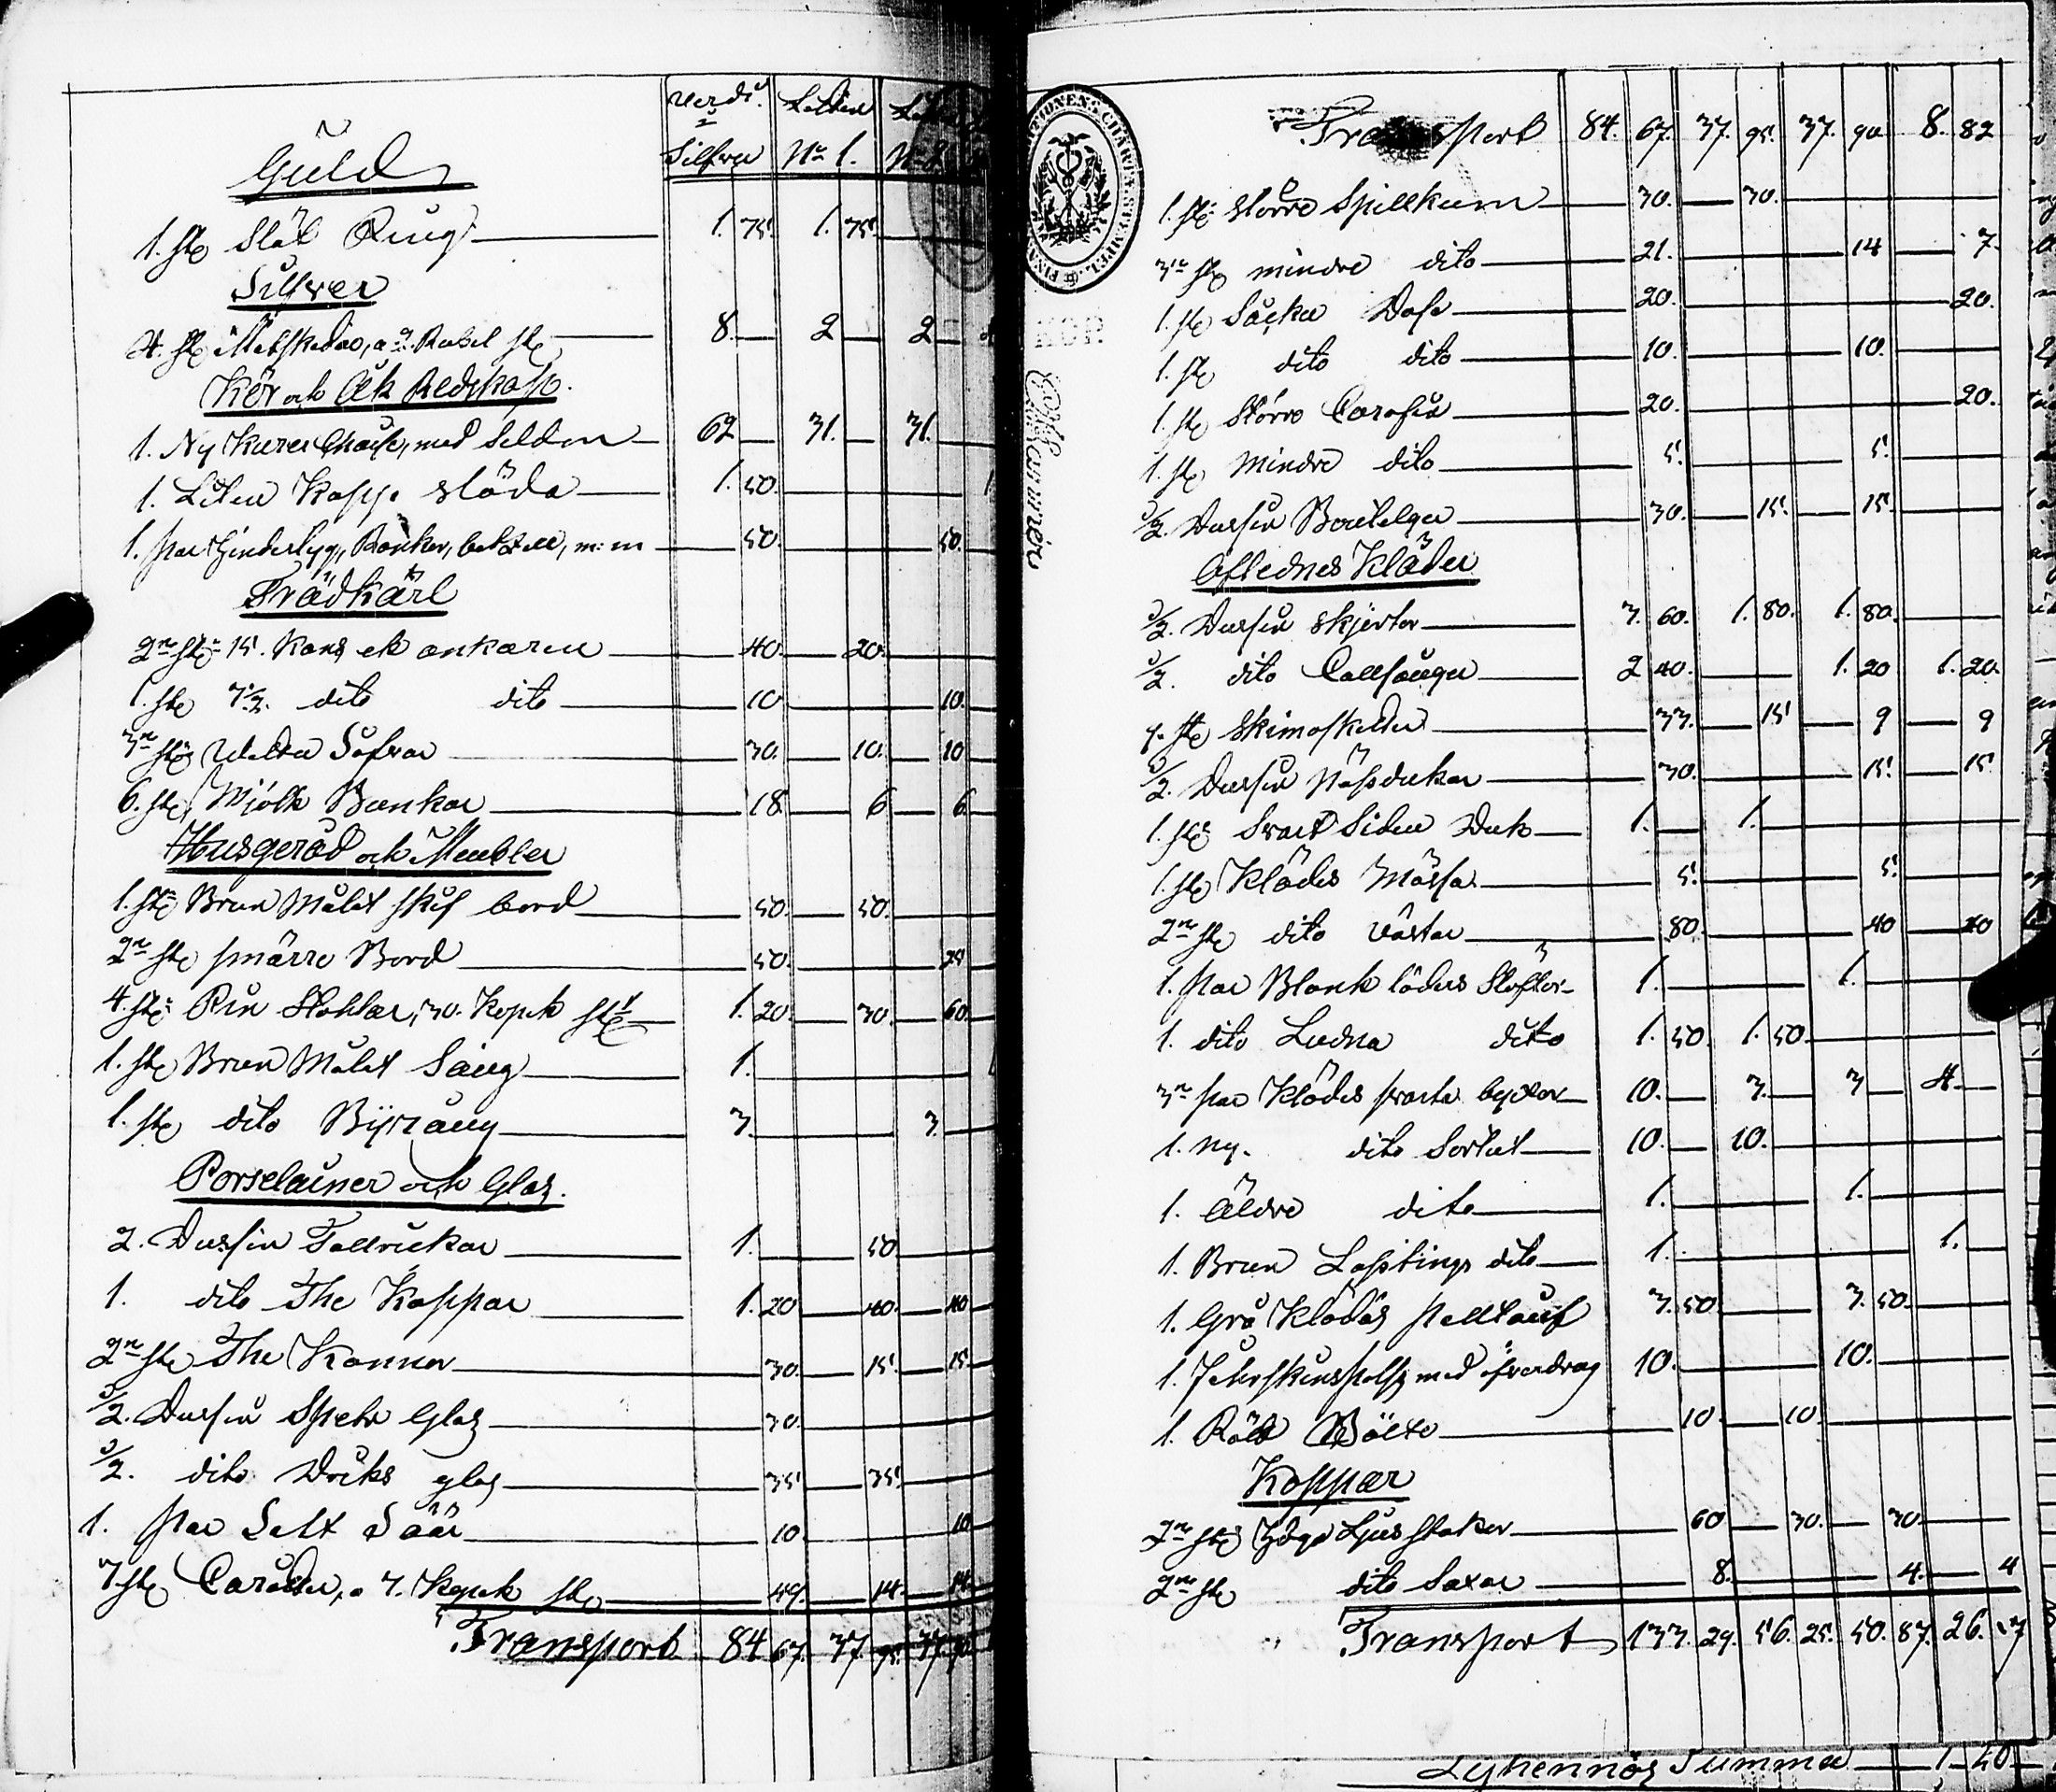 Verdi. Lotten
i Silfver No 1. No 2.
Guld
1. st Slät Ring 1. 75. 1. 75.
Silfver
4. st Matskedar, a 2. Rubel st 8. 2 2
Kör och Åk Redskap.
1. Ny Kurer Chaise, med Seldon 62 31. 31.
1. Liten Kapp släda 1. 50.
1. par Ranker, m:m 50. 50.
Trädkärl
2ne st 15. Kans ek ankaren 40. 20.
1. st 7½ dito dito 10 10.
3ne st Såfvar 30. 10. 10
6. st Mjölk Bunkar 18 6 6
Husgeråd och Meubler
1. st Brun Målat skif bord 50. 50.
2ne st smärre Bord 50. 25
4. st Stohlar, 30. Kopek st 1. 20. 30. 60.
1. st Brun Målat Säng 1.
1. st dito Byrång 3. 3.
Porselainer och Glas.
2. Dussin Tallrickar 1. 50.
1. dito The Koppar 1. 20 40. 40
2ne st The Kannor 30. 15. 15
½. Dussin Spets Glas 30.
½. dito Driks glas 35. 35.
1. par Salt Säär 10. 10
7 st a 7. Kopek st 49. 14. 14.
Transport 84 67. 37. 95. 37. 90
FINANS CHARTÆ STEMPEL
Transport 84. 67. 37. 95. 37. 90. 8. 82
1. st större Spillkum 30. 30.
3ne st mindre dito 21. 14 7.
1. st Såcker Dose 20. 20.
1. st dito dito 10. 10.
1. st Större Carafin 20. 20.
1. st Mindre dito 5. 5.
½ Dussin Boutelger 30. 15. 15.
Aflednes Kläder
½. Dussin Skjortor 3. 60. 1. 80. 1. 80.
½. dito Callsånger 2 40. 1. 20 1. 20.
st 33. 15 9 9
½. Dussin Näsdukar 30. 15. 15
1. st Svart Siden Duk 1. 1.
1. st Klädes Mössa 5. 5.
2ne st dito Västar 80. 40 40
1. par Blank läders Stöflor 1. 1.
1. dito Ludna dito 1. 50. 1. 50.
3ne par Klädes svarta byxor 10. 3. 3 4
1. ny. dito Sortut 10. 10.
1. Äldre dito 1. 1.
1. Brun Lastings dito 1. 1.
1. Grå Klädes 3. 50. 3. 50.
1. med öfverdrag 10. 10.
1. Bälte 10. 10.
Koppar
2ne st Höga Ljus stakar 60 30. 30.
2ne st dito Saxar 8. 4. 4
Transport 133. 29. 56. 25. 50. 87. 26. 17
Lyhennös Summa 1 40